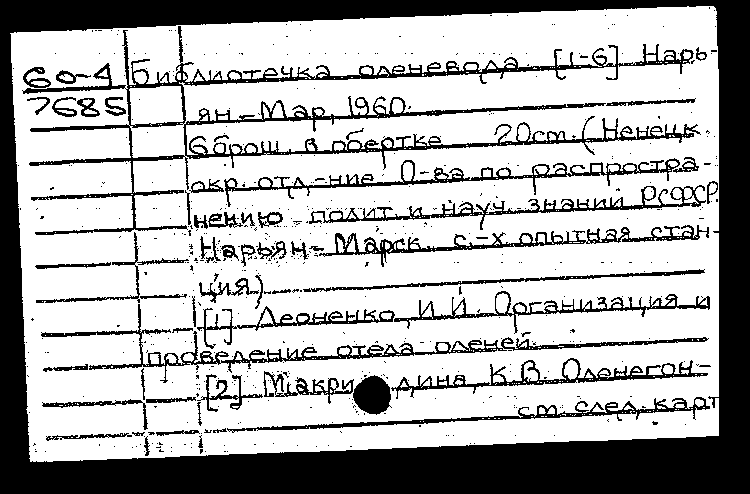 60-4 Библиотечка оленевода. [1-6] Нарь-
7685 ян-Мар, 1960.
6 брош. в обертке 20 см. (Ненецк.
окр. отд-ние О-ва по распростра-
нению полит и науч. знаний РСФСР.
Нарьян-Марск. с.-х опытная стан-
ция)
[1] Леоненко, И.И. Организация и
проведение отела оленей.
[2] Макри дина, К.В. Оленегон-
см. след. карт